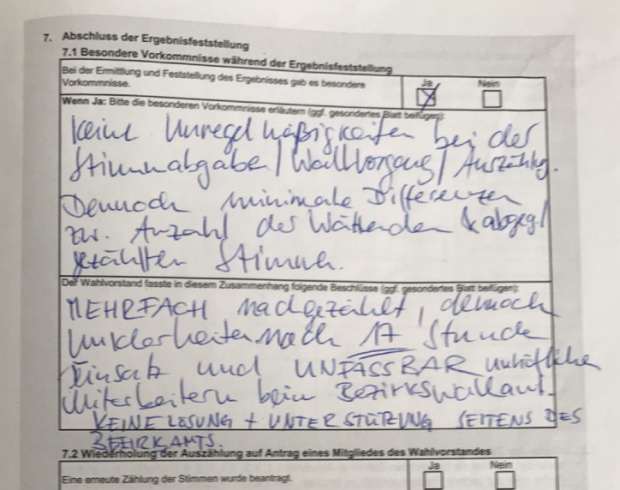 7. Abschluss der Ergebnisfeststellung
7.1 Besondere Vorkommnisse während der Ergebnisfeststellung
Bei der Ermittlung und Feststellung des Ergebnisses gab es besondere Vorkommnisse.
Ja Nein
Wenn Ja: Bitte die besonderen Vorkommnisse erläutern (ggf. gesondertes Blatt beifügen):
Keine Unregelmäßigkeiten bei der
Stimmabgabe/Wahlvorgang/Auszählg.
Dennoch minimale Differenzen
zw. Anzahl der Wählenden & abgeg/
gezählten Stimmen.
Der Wahlvorstand fasste in diesem Zusammenhang folgende Beschlüsse (ggf. gesondertes Blatt beifügen):
MEHRFACH nachgezählt, dennoch
Unklarheiten nach 17 Stunde
Einsatz und UNFASSBAR unhöfliche
Mitarbeitern beim Bezirkswahlamt.
KEINE LÖSUNG + UNTERSTÜTZUNG SEITENS DES
BEZIRKAMTS.
7.2 Wiederholung der Auszählung auf Antrag eines Mitgliedes des Wahlvorstandes
Ja Nein
Eine erneute Zählung der Stimmen wurde beantragt.